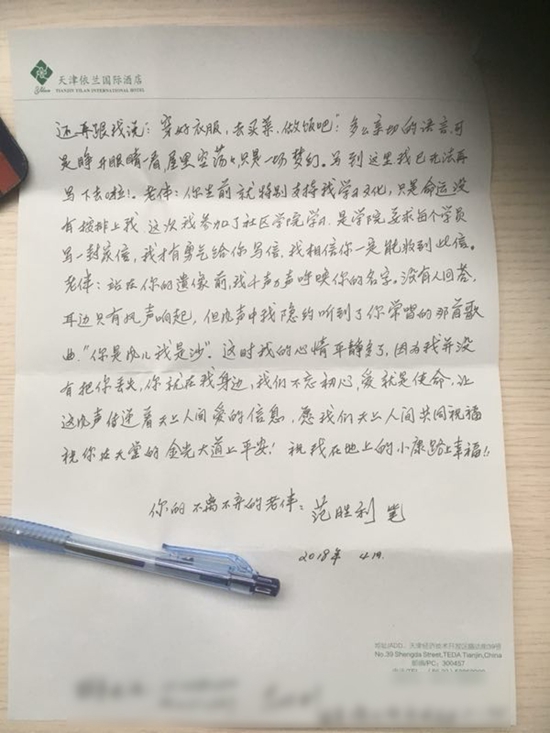 天津依兰国际酒店
TIANJIN YILAN INTERNATIONAL HOTEL
还再跟我说:"穿好衣服,去买菜,做饭吧":多么亲切的语言,可
是睁开眼睛一看,屋里空荡々只是一场梦幻。写到这里我已无法再
写下去啦!。老伴:你生前就特别支持我学习文化,只是命运没
有按排上我 这次我参加了社区学院学习.是学院要求每个学员
写一封家信,我才有勇气给你写信,我相信你一定能收到此信。
老伴:站在你的遗像前,我千声万声呼唤你的名字,没有人回答,
耳边只有风声响起,但风声中我隐约听到了你常唱的那首歌
曲."你是风儿我是沙".这时我的心情平静多了,因为我并没
有把你丢失,你就在我身边,我们不忘初心,爱就是使命,让
这风声传递着天上人间爱的信息,愿我们天上人间共同祝福
祝你在天堂的金光大道上平安!祝我在地上的小康路上幸福!!
你的不离不弃的老伴:范胜利 笔
2018年 4.19.
地址/ADD:天津经济技术开发区盛达街39号
No.39 Shengda Street,TEDA Tianjin,China
邮编/PC:300457